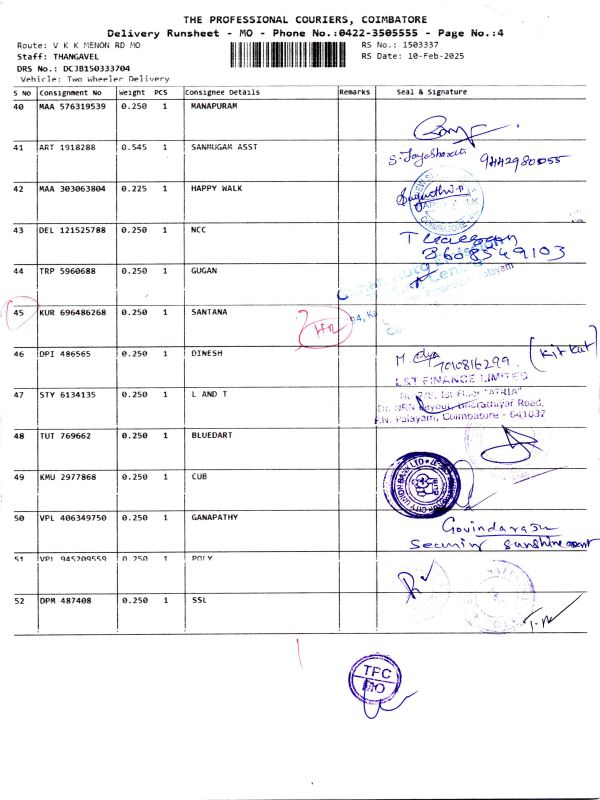 THE PROFESSIONAL COURIERS, COIMBATORE
Delivery Runsheet - MO - Phone No.:0422-3505555 - Page No.:4
Route: V K K MENON RD MO
RS No.: 1503337
Staff: THANGAVEL
RS Date: 10-Feb-2025
DRS No.: DCJB150333704
Vehicle: Two Wheeler Delivery
S No Consignment No Weight PCS Consignee Details Remarks Seal & Signature
40 MAA 576319539 0.250 1 MANAPURAM
41 ART 1918288 0.545 1 SANMUGAM ASST
9442980055
42 MAA 303063804 0.225 1 HAPPY WALK
COIMBATORE
43 DEL 121525788 0.250 1 NCC
8608549103
44 TRP 5960688 0.250 1 GUGAN
45 KUR 696486268 0.250 1 SANTANA
46 DPI 486565 0.250 1 DINESH
M 7010816299 (Kitkat)
L&T FINANCE LIMITED
1st Floor "ATRIA"
47 STY 6134135 0.250 1 L AND T
Layout, Bharathiyar Road,
P.N. Palayam, Coimbatore - 641037
48 TUT 769662 0.250 1 BLUEDART
49 KMU 2977868 0.250 1 CUB
CITY UNION BANK LTD
50 VPL 406349750 0.250 1 GANAPATHY
Govindaraju
Security Sunshine apart
51 VPL 945209559 0.250 1 POLY
52 DPM 487408 0.250 1 SSL
TPC
MO